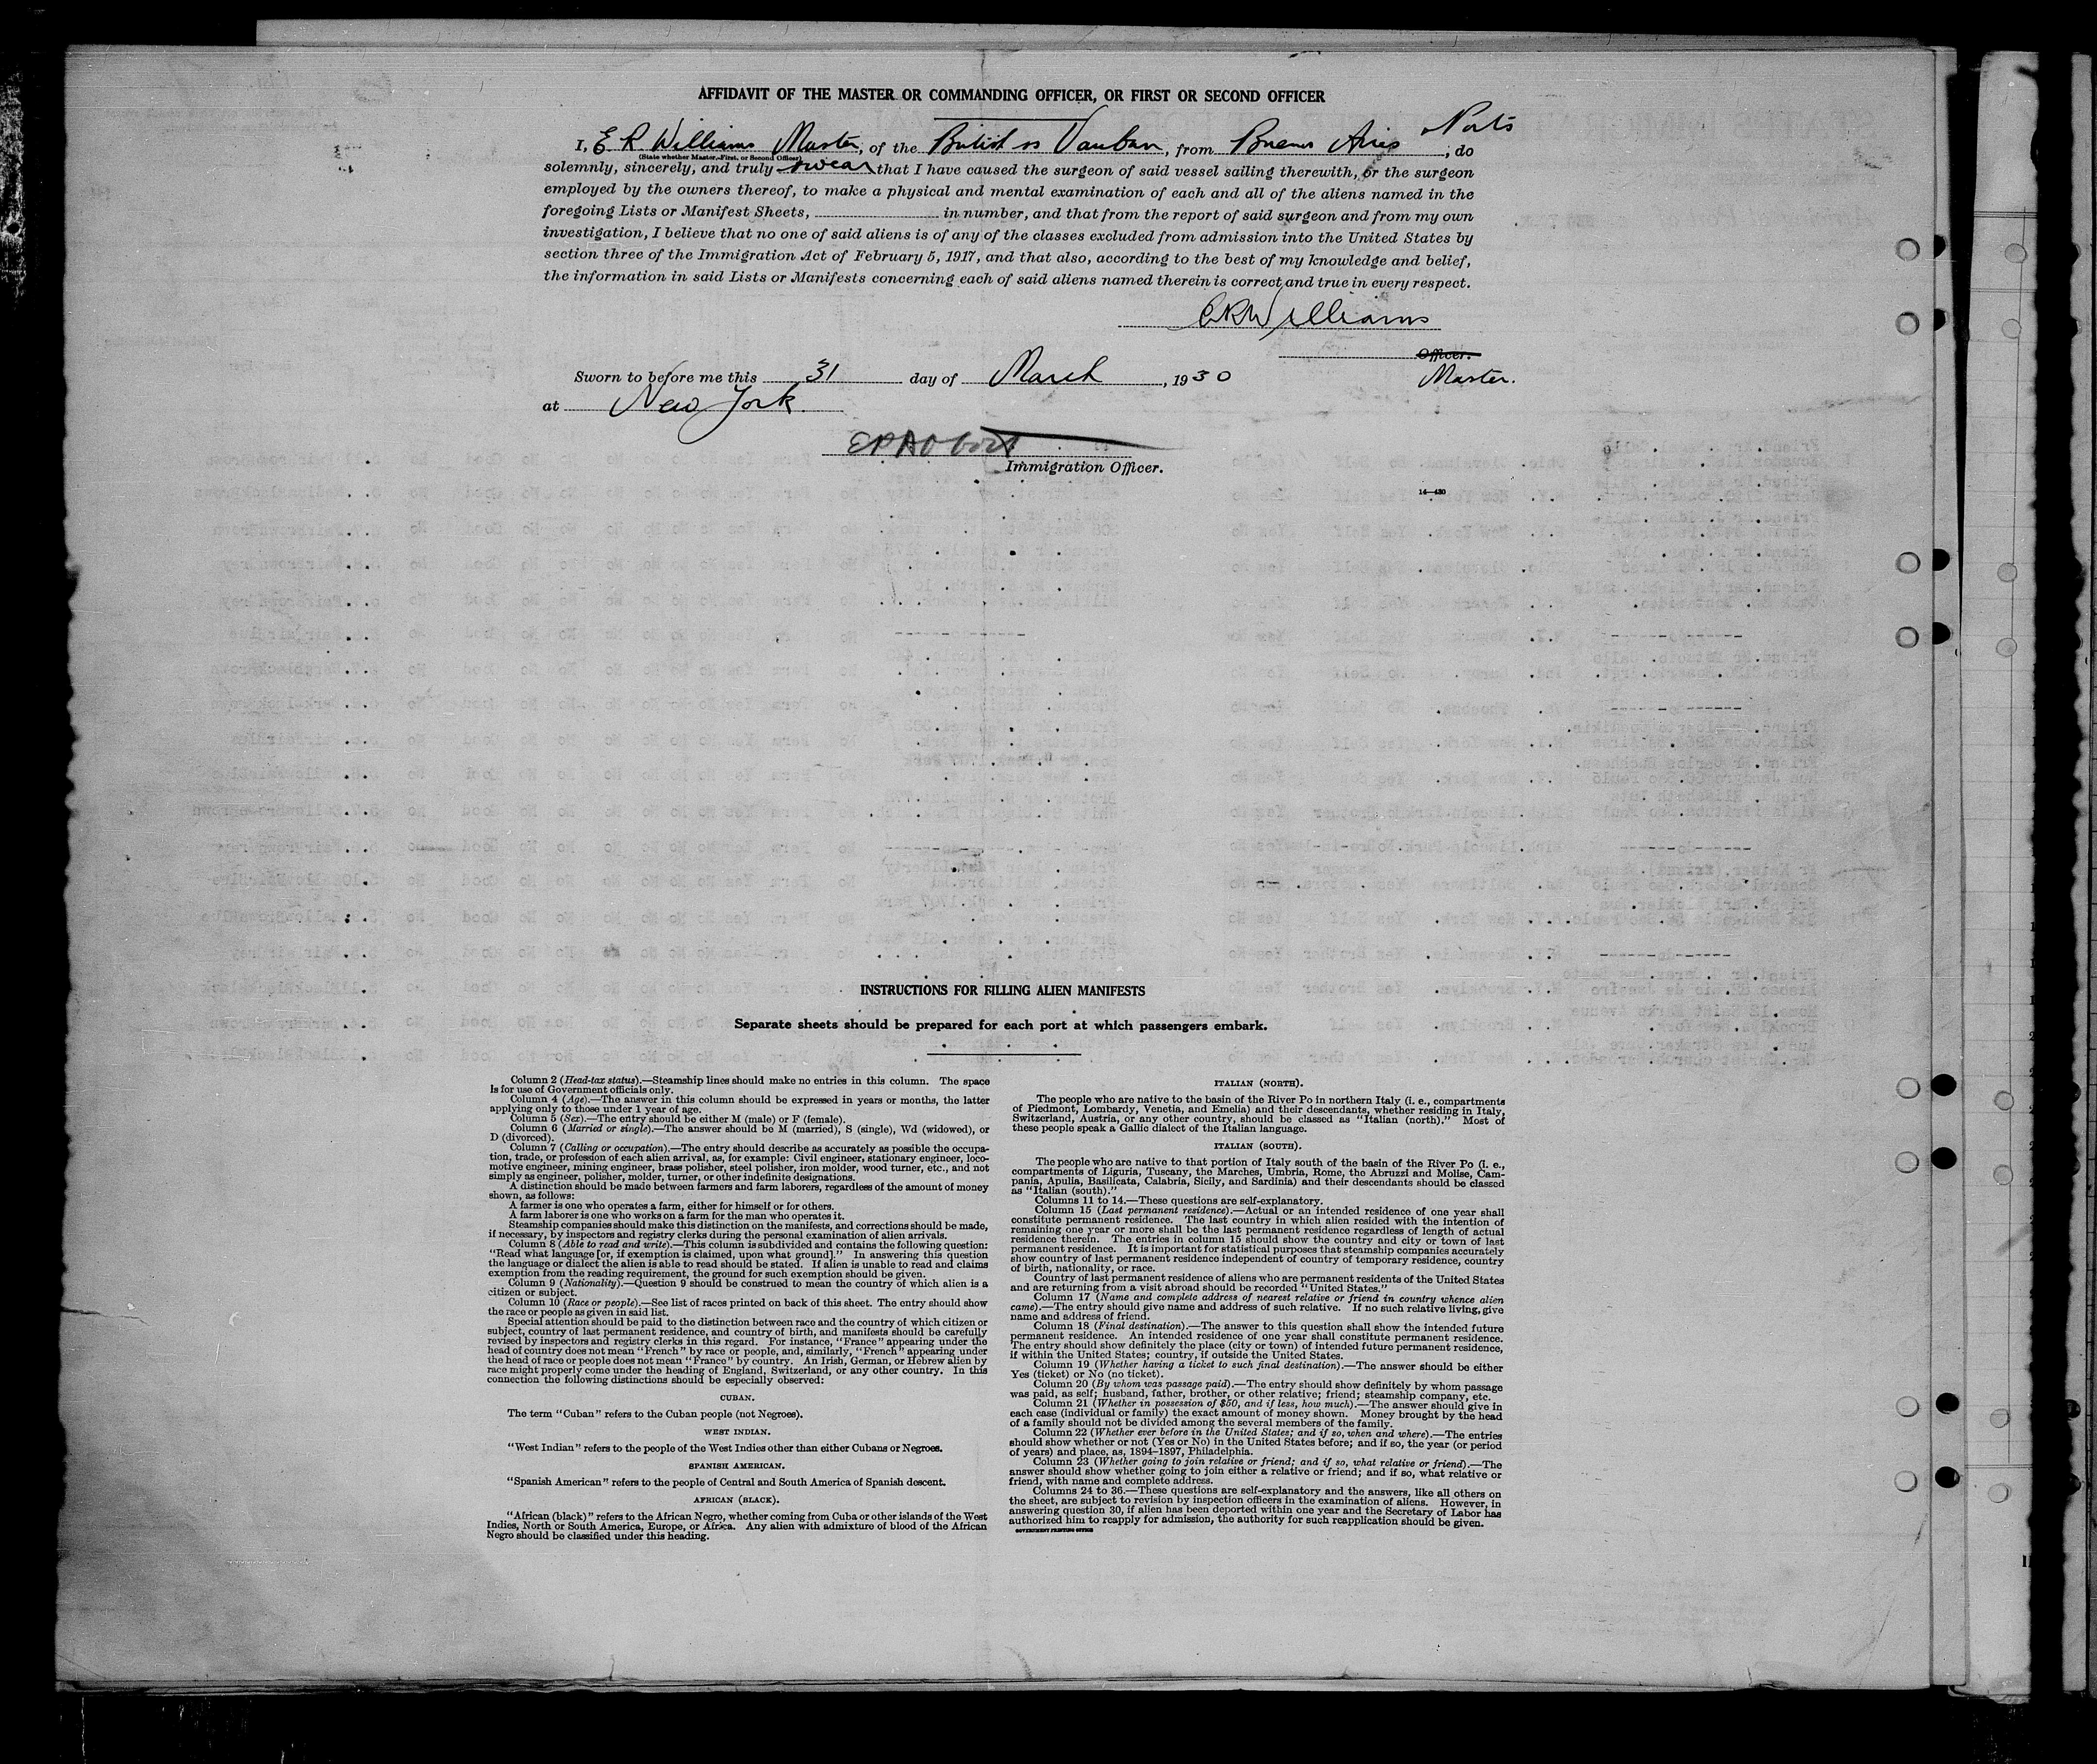 AFFIDAVIT OF THE MASTER OR COMMANDING OFFICER, OR FIRST OR SECOND OFFICER
I, E R Williams Master, of the British ss Vauban, from Buenos Aires , do
(State whether Master, First, or Second Officer)
solemnly, sincerely, and truly swear that I have caused the surgeon of said vessel sailing therewith, or the surgeon
employed by the owners thereof, to make a physical and mental examination of each and all of the aliens named in the
foregoing Lists or Manifest Sheets, in number, and that from the report of said surgeon and from my own
investigation, I believe that no one of said aliens is of any of the classes excluded from admission into the United States by
section three of the Immigration Act of February 5, 1917, and that also, according to the best of my knowledge and belief,
the information in said Lists or Manifests concerning each of said aliens named therein is correct and true in every respect.
E R Williams
Officer.
Sworn to before me this 31 day of March, 1930
Master.
at New York.
Immigration Officer.
14—430
INSTRUCTIONS FOR FILLING ALIEN MANIFESTS
Separate sheets should be prepared for each port at which passengers embark.
Column 2 (Head-tax status).—Steamship lines should make no entries in this column. The space
is for use of Government officials only.
Column 4 (Age).—The answer in this column should be expressed in years or months, the latter
applying only to those under 1 year of age.
Column 5 (Sex).—The entry should be either M (male) or F (female).
Column 6 (Married or single).—The answer should be M (married), S (single), Wd (widowed), or
D (divorced).
Column 7 (Calling or occupation).—The entry should describe as accurately as possible the occupa-
tion, trade, or profession of each alien arrival, as, for example: Civil engineer, stationary engineer, loco-
motive engineer, mining engineer, brass polisher, steel polisher, iron molder, wood turner, etc., and not
simply as engineer, polisher, molder, turner, or other indefinite designations.
A distinction should be made between farmers and farm laborers, regardless of the amount of money
shown, as follows:
A farmer is one who operates a farm, either for himself or for others.
A farm laborer is one who works on a farm for the man who operates it.
Steamship companies should make this distinction on the manifests, and corrections should be made,
if necessary, by inspectors and registry clerks during the personal examination of alien arrivals.
Column 8 (Able to read and write).—This column is subdivided and contains the following question:
"Read what language [or, if exemption is claimed, upon what ground]." In answering this question
the language or dialect the alien is able to read should be stated. If alien is unable to read and claims
exemption from the reading requirement, the ground for such exemption should be given.
Column 9 (Nationality).—Question 9 should be construed to mean the country of which alien is a
citizen or subject.
Column 10 (Race or people).—See list of races printed on back of this sheet. The entry should show
the race or people as given in said list.
Special attention should be paid to the distinction between race and the country of which citizen or
subject, country of last permanent residence, and country of birth, and manifests should be carefully
revised by inspectors and registry clerks in this regard. For instance, "France" appearing under the
head of country does not mean "French" by race or people, and, similarly, "French" appearing under
the head of race or people does not mean "France" by country. An Irish, German, or Hebrew alien by
race might properly come under the heading of England, Switzerland, or any other country. In this
connection the following distinctions should be especially observed:
CUBAN.
The term "Cuban" refers to the Cuban people (not Negroes).
WEST INDIAN.
"West Indian" refers to the people of the West Indies other than either Cubans or Negroes.
SPANISH AMERICAN.
"Spanish American" refers to the people of Central and South America of Spanish descent.
AFRICAN (BLACK).
"African (black)" refers to the African Negro, whether coming from Cuba or other islands of the West
Indies, North or South America, Europe, or Africa. Any alien with admixture of blood of the African
Negro should be classified under this heading.
ITALIAN (NORTH).
The people who are native to the basin of the River Po in northern Italy (i. e., compartments
of Piedmont, Lombardy, Venetia, and Emelia) and their descendants, whether residing in Italy,
Switzerland, Austria, or any other country, should be classed as "Italian (north)." Most of
these people speak a Gallic dialect of the Italian language.
ITALIAN (SOUTH).
The people who are native to that portion of Italy south of the basin of the River Po (i. e.,
compartments of Liguria, Tuscany, the Marches, Umbria, Rome, the Abruzzi and Molise, Cam-
pania, Apulia, Basilicata, Calabria, Sicily, and Sardinia) and their descendants should be classed
as "Italian (south)."
Columns 11 to 14.—These questions are self-explanatory.
Column 15 (Last permanent residence).—Actual or an intended residence of one year shall
constitute permanent residence. The last country in which alien resided with the intention of
remaining one year or more shall be the last permanent residence regardless of length of actual
residence therein. The entries in column 15 should show the country and city or town of last
permanent residence. It is important for statistical purposes that steamship companies accurately
show country of last permanent residence independent of country of temporary residence, country
of birth, nationality, or race.
Country of last permanent residence of aliens who are permanent residents of the United States
and are returning from a visit abroad should be recorded "United States."
Column 17 (Name and complete address of nearest relative or friend in country whence alien
came).—The entry should give name and address of such relative. If no such relative living, give
name and address of friend.
Column 18 (Final destination).—The answer to this question shall show the intended future
permanent residence. An intended residence of one year shall constitute permanent residence.
The entry should show definitely the place (city or town) of intended future permanent residence,
if within the United States; country, if outside the United States.
Column 19 (Whether having a ticket to such final destination).—The answer should be either
Yes (ticket) or No (no ticket).
Column 20 (By whom was passage paid).—The entry should show definitely by whom passage
was paid, as self; husband, father, brother, or other relative; friend; steamship company, etc.
Column 21 (Whether in possession of $50, and if less, how much).—The answer should give in
each case (individual or family) the exact amount of money shown. Money brought by the head
of a family should not be divided among the several members of the family.
Column 22 (Whether ever before in the United States; and if so, when and where).—The entries
should show whether or not (Yes or No) in the United States before; and if so, the year (or period
of years) and place, as, 1894-1897, Philadelphia.
Column 23 (Whether going to join relative or friend; and if so, what relative or friend).—The
answer should show whether going to join either a relative or friend; and if so, what relative or
friend, with name and complete address.
Columns 24 to 36.—These questions are self-explanatory and the answers, like all others on
the sheet, are subject to revision by inspection officers in the examination of aliens. However, in
answering question 30, if alien has been deported within one year and the Secretary of Labor has
authorized him to reapply for admission, the authority for such reapplication should be given.
GOVERNMENT PRINTING OFFICE